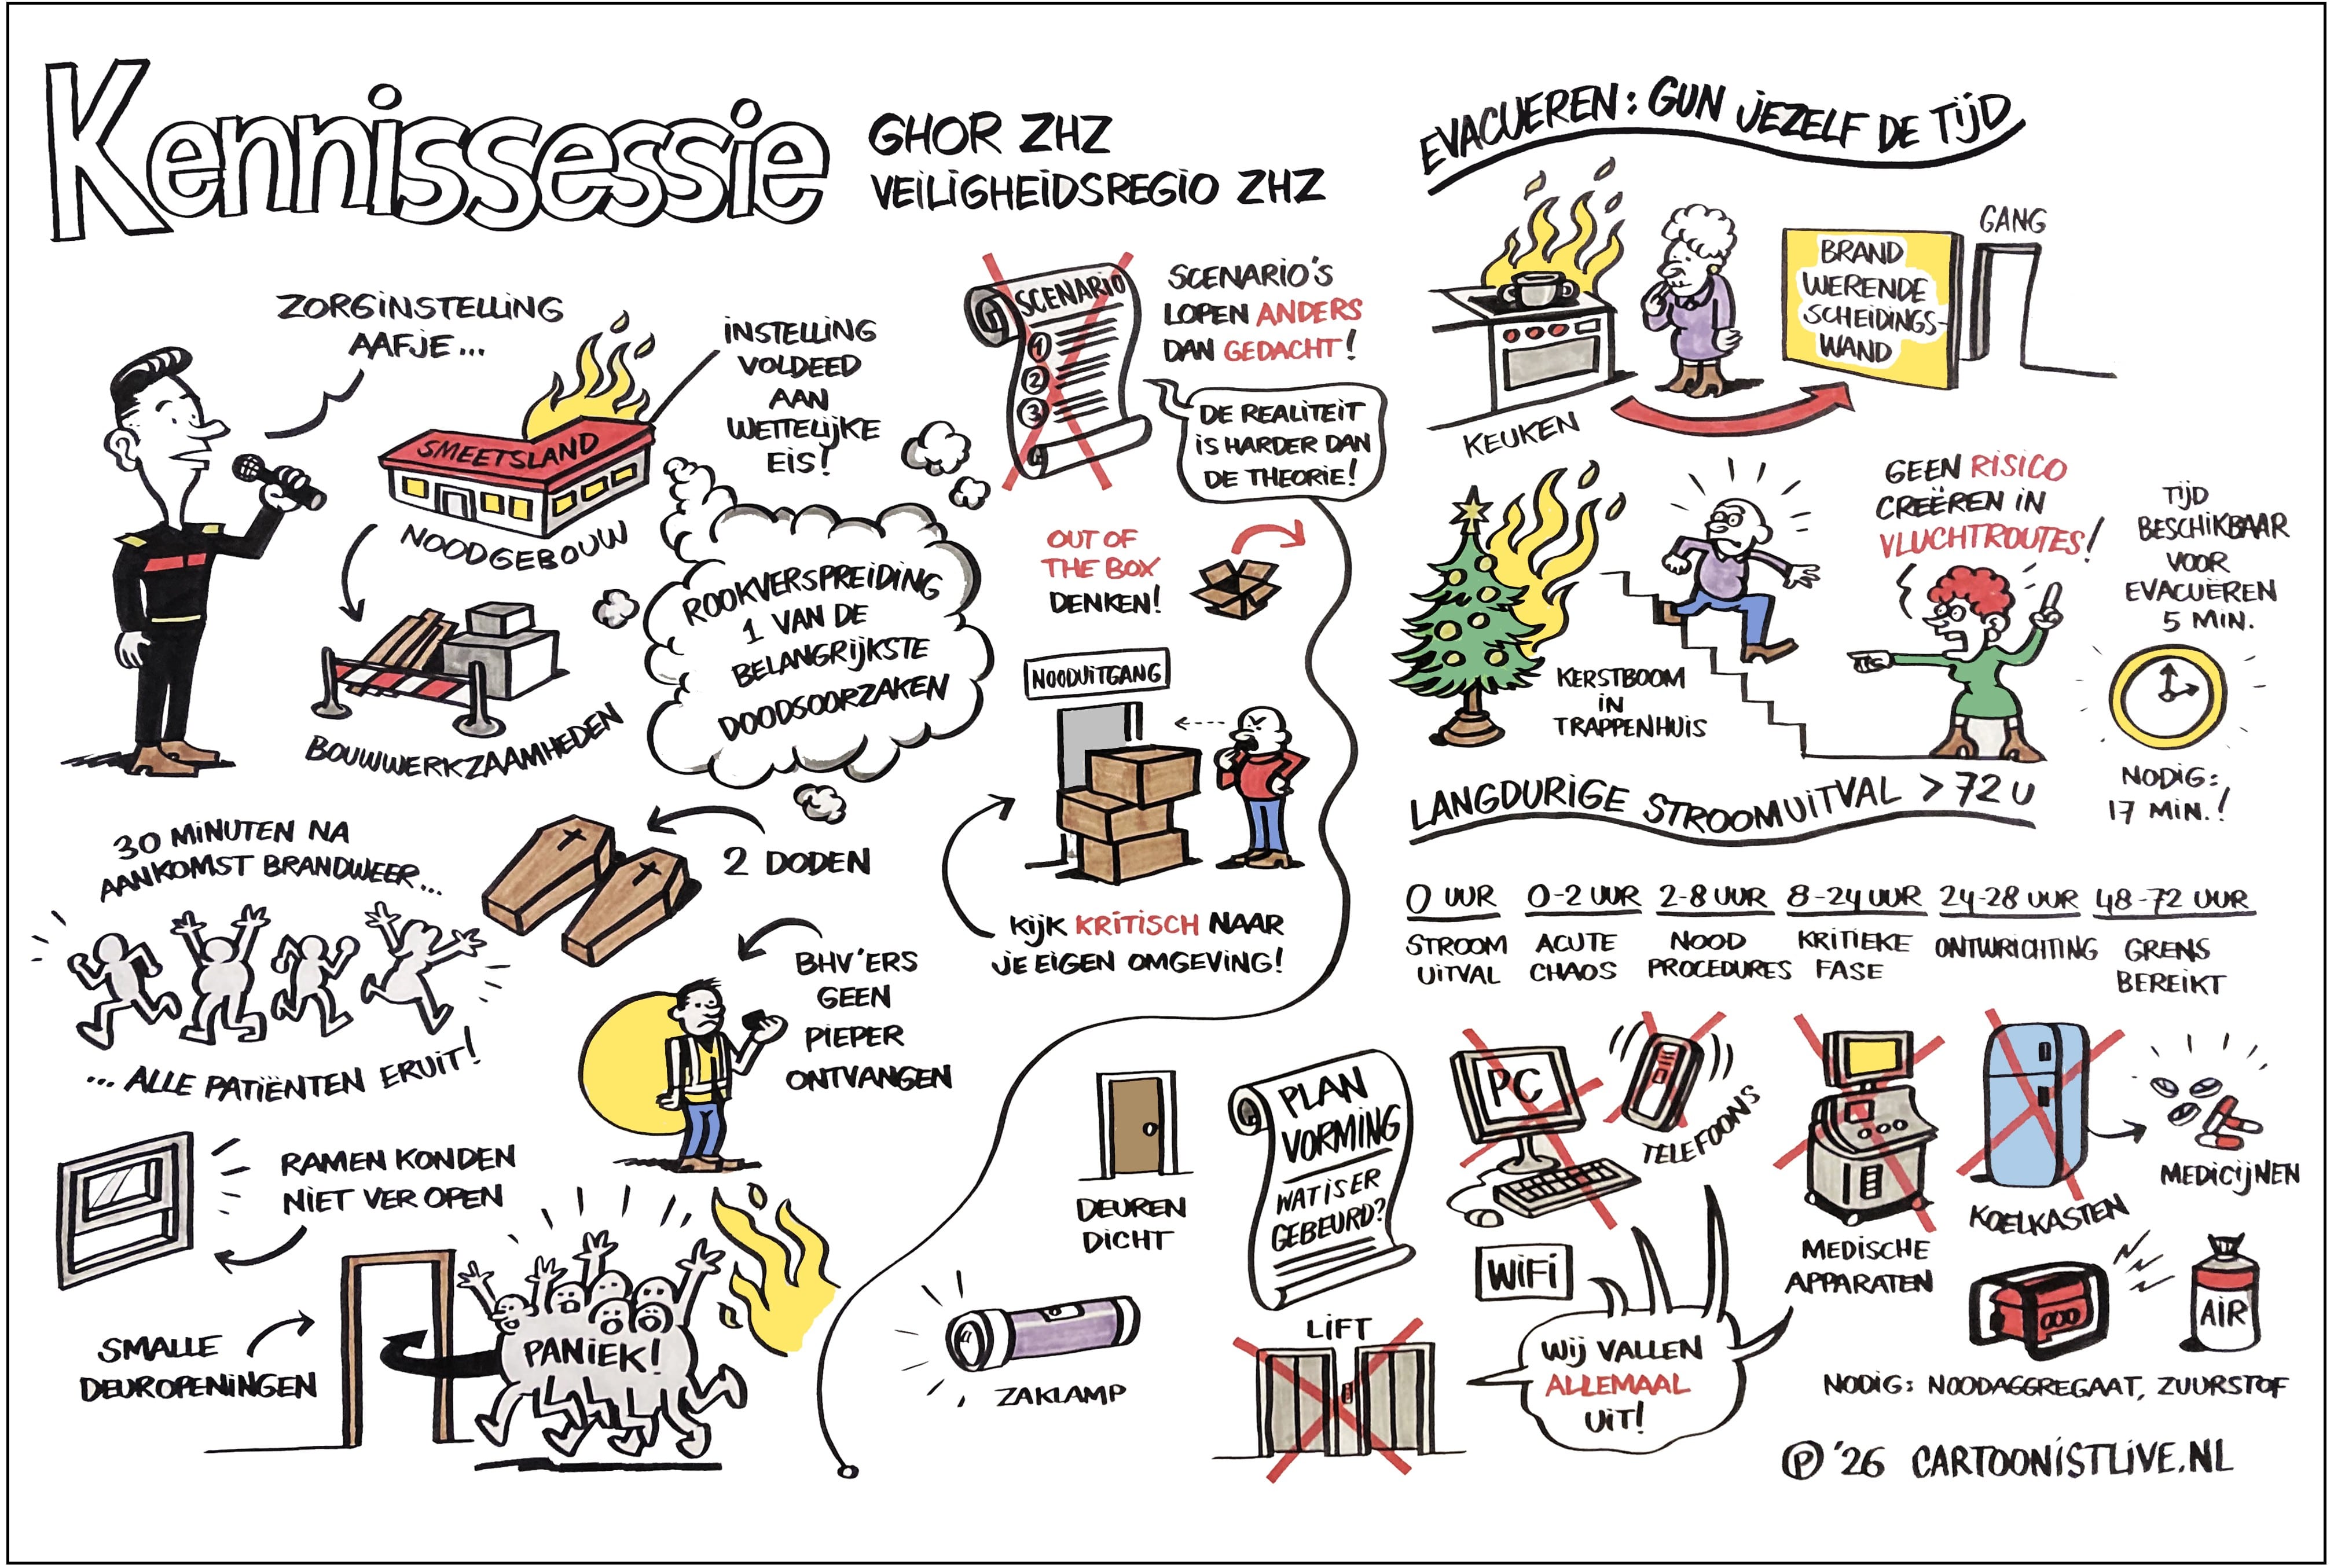 Kennissessie
GHOR ZHZ
VEILIGHEIDSREGIO ZHZ
ZORGINSTELLING
AAFJE...
SMEETSLAND
NOODGEBOUW
INSTELLING
VOLDEED
AAN
WETTELIJKE
EIS!
BOUWWERKZAAMHEDEN
ROOKVERSPREIDING
1 VAN DE
BELANGRIJKSTE
DOODSOORZAKEN
2 DODEN
30 MINUTEN NA
AANKOMST BRANDWEER...
... ALLE PATIËNTEN ERUIT!
BHV'ERS
GEEN
PIEPER
ONTVANGEN
RAMEN KONDEN
NIET VER OPEN
SMALLE
DEUROPENINGEN
PANIEK!
SCENARIO
1
2
3
SCENARIO'S
LOPEN ANDERS
DAN GEDACHT!
DE REALITEIT
IS HARDER DAN
DE THEORIE!
OUT OF
THE BOX
DENKEN!
NOODUITGANG
KIJK KRITISCH NAAR
JE EIGEN OMGEVING!
EVACUEREN: GUN JEZELF DE TIJD
KEUKEN
BRAND
WERENDE
SCHEIDINGS-
WAND
GANG
KERSTBOOM
IN
TRAPPENHUIS
GEEN RISICO
CREËREN IN
VLUCHTROUTES!
TIJD
BESCHIKBAAR
VOOR
EVACUËREN
5 MIN.
NODIG:
17 MIN.!
LANGDURIGE STROOMUITVAL > 72 U
0 UUR
STROOM
UITVAL
0-2 UUR
ACUTE
CHAOS
2-8 UUR
NOOD
PROCEDURES
8-24 UUR
KRITIEKE
FASE
24-28 UUR
ONTWRICHTING
48-72 UUR
GRENS
BEREIKT
DEUREN
DICHT
PLAN
VORMING
WAT IS ER
GEBEURD?
ZAKLAMP
LIFT
PC
TELEFOONS
WIFI
WIJ VALLEN
ALLEMAAL
UIT!
MEDISCHE
APPARATEN
KOELKASTEN
MEDICIJNEN
AIR
NODIG: NOODAGGREGAAT, ZUURSTOF
Ⓟ '26 CARTOONISTLIVE.NL